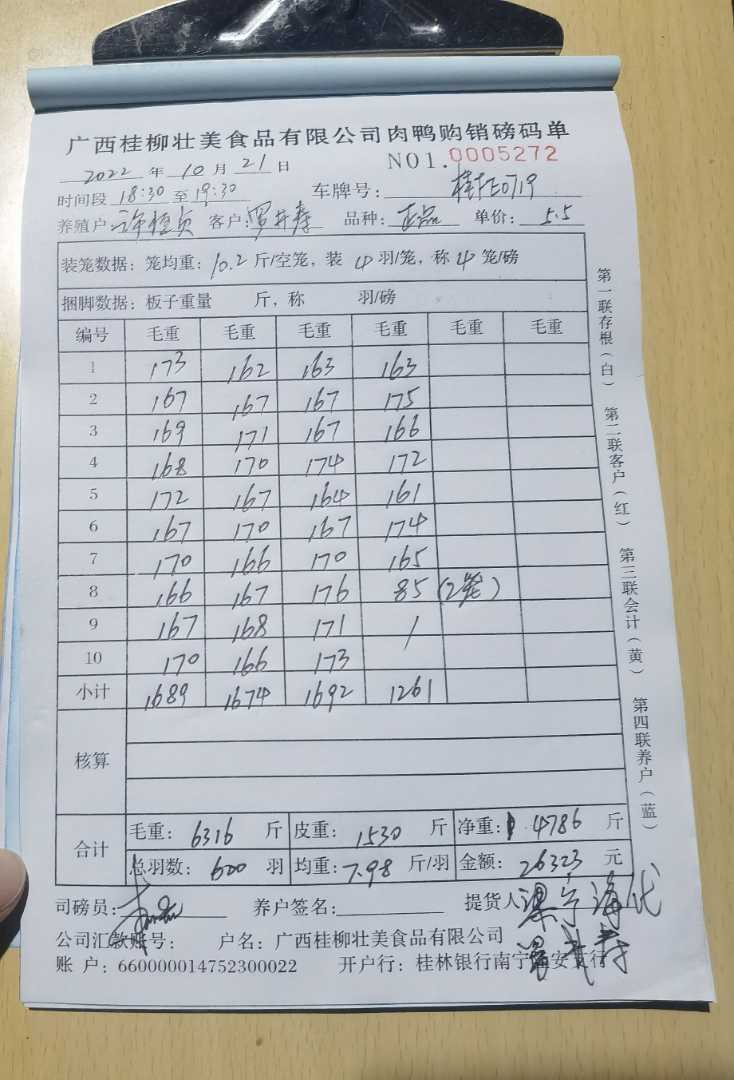 广西桂柳壮美食品有限公司肉鸭购销磅码单
2022 年 10 月 21 日 NO1.0005272
时间段 18:30 至 19:30 车牌号:
养殖户 客户: 品种: 正品 单价: 5.5
装笼数据: 笼均重: 10.2 斤/空笼, 装 4 羽/笼, 称 4 笼/磅
捆脚数据: 板子重量 斤, 称 羽/磅
编号 毛重 毛重 毛重 毛重 毛重 毛重
1 173 162 163 163
2 167 167 167 175
3 169 171 167 166
4 168 170 174 172
5 172 167 164 161
6 167 170 167 174
7 170 166 170 165
8 166 167 176 85 (2笼)
9 167 168 171 /
10 170 166 173
小计 1689 1674 1692 1261
核算
合计 毛重: 6316 斤 皮重: 1530 斤 净重: 4786 斤
总羽数: 600 羽 均重: 7.98 斤/羽 金额: 26323 元
司磅员: 养户签名: 提货人
公司汇款账号: 户名: 广西桂柳壮美食品有限公司
账 户: 660000014752300022 开户行: 桂林银行南宁 安支行
第一联存根(白) 第二联客户(红) 第三联会计(黄) 第四联养户(蓝)